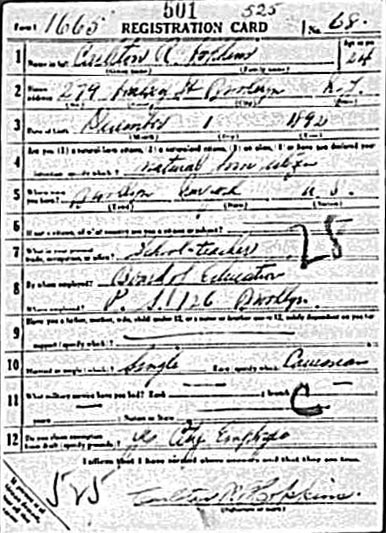 501 525
Form 1 1665 REGISTRATION CARD No. 68
1 Name in full Carlton R. Hopkins Age in yrs 24
(Given name) (Family name)
2 Home address 279 St Brooklyn N.Y.
3 Date of birth December 1 1892
(Month) (Day) (Year)
4 Are you (1) a natural-born citizen, (2) a naturalized citizen, (3) an alien, (4) or have you declared your
intention (specify which)? natural born citizen
5 Where were you born? Brooklyn New York U.S.
(Town) (State) (Nation)
6 If not a citizen, of what country are you a citizen or subject?
7 What is your present trade, occupation, or office? School-teacher 25
8 By whom employed? Board of Education
Where employed? P. S. 126 Brooklyn.
9 Have you a father, mother, wife, child under 12, or a sister or brother under 12, solely dependent on you for
support (specify which)?
10 Married or single (which)? Single Race (specify which)? Caucasian
11 What military service have you had? Rank ; branch C
years ; Nation or State
12 Do you claim exemption from draft (specify grounds)? Yes City Employee
I affirm that I have verified above answers and that they are true.
525 Carlton R. Hopkins.
(Signature or mark)